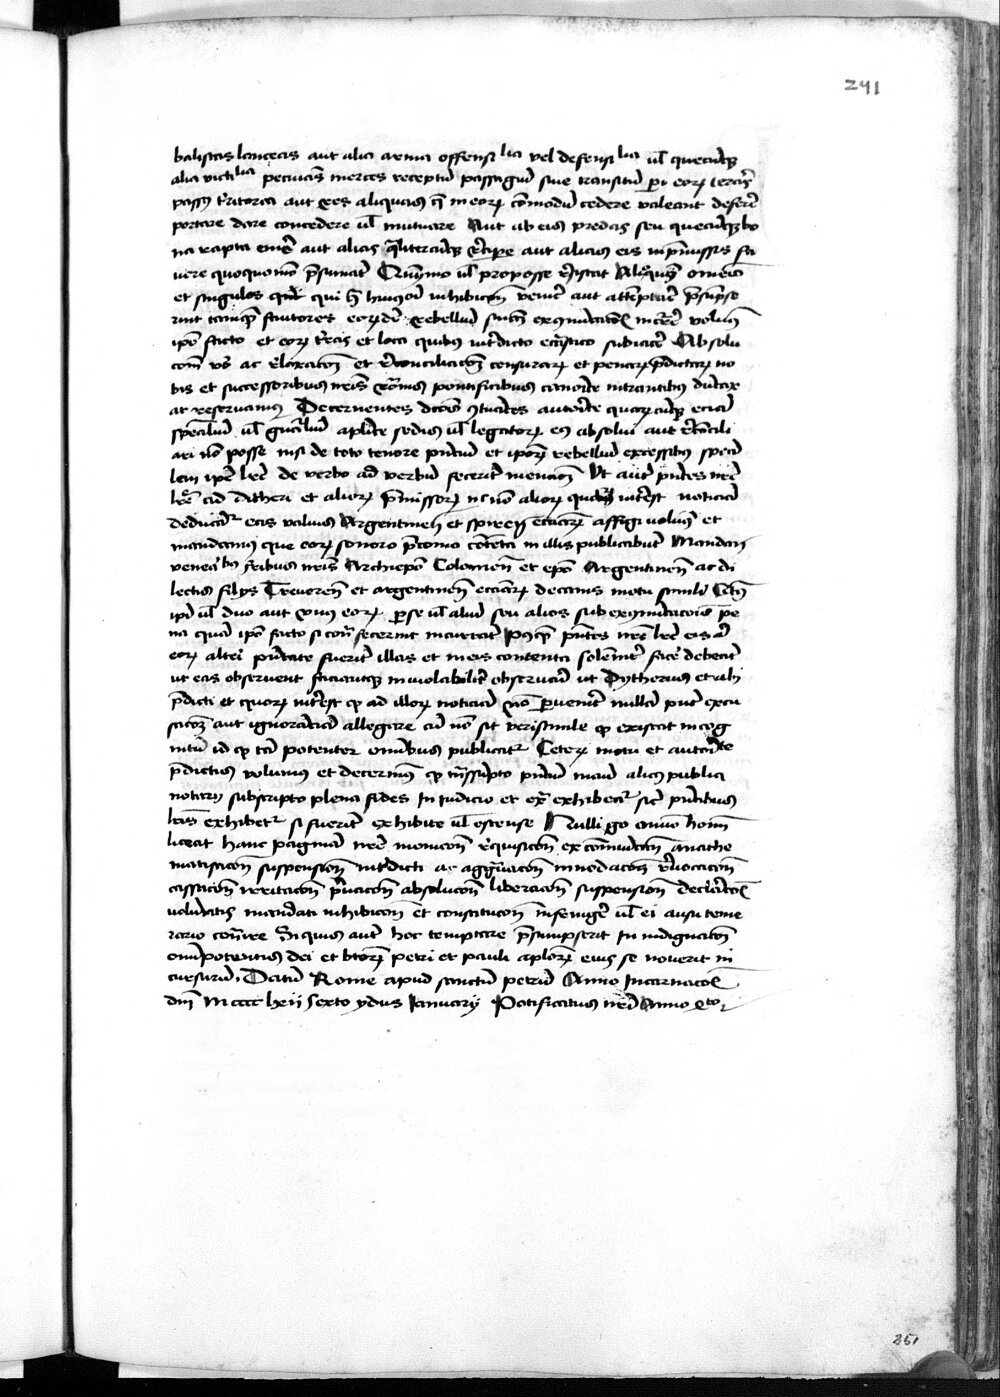 241
balistas lanceas aut alia arma offensilia vel defensilia vl quecumq
alia victilia pecunias merces receptum passagium siue transitum per eorum terras
passus territoria aut res aliquas que in eorum commodum cedere valeant deferre
portare dare concedere vl mutuare Aut ab eis predas seu quecumq bo
na rapta emere aut alias qualitercumq recipere aut alicuius eis in premissis fa
uere quoquomodo presumat
et singulos qui huiusmodi inhibicionem venire aut attemptare presumpse
rint tamquam fautores eorumdem rebellium sentenciam excommunicacionis incurrere volumus
ipso facto et eorum terras et loca quibus interdicto ecclesiastico subiacere Absolu
cionem vero ac relaxacionem et reconciliacionem censurarum et penarum predictarum no
bis et successoribus nostris Romanis pontificibus canonice intrantibus dumtax
at reseruamus Decernentes
specialium vl generalium aplice sedis vl legatorum eius absolui aut reconcili
ari non posse nisi de toto tenore presentium et ipsorum rebellium excessibus specia
lem ipse littere de verbo ad verbum fecerint mencionem Vt autem presentes nostre
littere ad Dietheri et aliorum premissorum nec non aliorum quorum interest noticiam
deducantur eas valuis Argentinen et Spiren ecclesiarum affigi volumus et
mandamus que eorum sonoro preconio contenta in illis publicabunt Mandan
venerabilibus fratribus nostris Archiepo Colonien et epo Argentinen ac di
lectis filijs Treueren et argentinen ecclesiarum decanis motu simili
ipsi vl duo aut vnus eorum per se vl alium seu alios sub excommunicacionis pe
na quam ipso facto si contra fecerint incurrant postquam presentes nostre littere eis aut
eorum alteri presentate fuerint illas et in eis contenta solemniter facere debeant
ut eas obseruent faciantq inuiolabiliter obseruari ut Dytherus et alij
predicti et quorum interest quod ad illorum noticiam non peruenerit nullam possint excu
sacionem aut ignoranciam allegare cum non sit verisimile quod existat incog
nitum id quod tam patenter omnibus publicatur Ceterum motu et auctoritate
predictis volumus et decernimus quod transumpto presentium manu alicuius publici
notarij subscripto plena fides in iudicio et extra exhibeatur sicut presentibus
litteris exhibetur si fuerint exhibite vl ostense Nulli ergo omnino hominum
liceat hanc paginam nostre monicionis requisicionis excommunicacionis anathe
matisacionis suspensionis interdicti ac aggrauacionis innodacionis reuocacionis
cassacionis irritacionis priuacionis absolucionis liberacionis suspensionis
voluntatis mandati inhibicionis et constitucionis infringere vl ei ausu teme
rario contraire Si quis autem hoc temptare presumpserit Indignacionem
omnipotentis dei et beatorum petri et pauli aplorum eius se nouerit in
cursurum Datum Rome apud sanctum petrum Anno Incarnacionis
dni M cccc lxii Sexto ydus Januarij Pontificatus nostri Anno
251